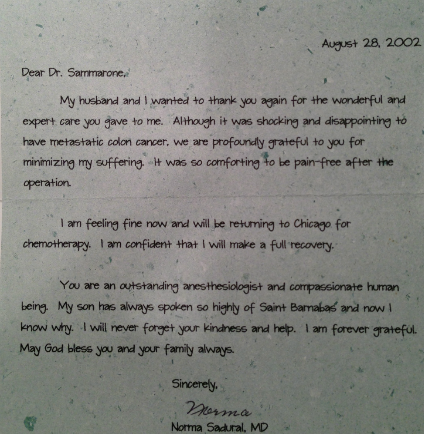 August 28, 2002
Dear Dr. Sammarone,
My husband and I wanted to thank you again for the wonderful and
expert care you gave to me. Although it was shocking and disappointing to
have metastatic colon cancer, we are profoundly grateful to you for
minimizing my suffering. It was so comforting to be pain-free after the
operation.
I am feeling fine now and will be returning to Chicago for
chemotherapy. I am confident that I will make a full recovery.
You are an outstanding anesthesiologist and compassionate human
being. My son has always spoken so highly of Saint Barnabas and now I
know why. I will never forget your kindness and help. I am forever grateful.
May God bless you and your family always.
Sincerely,
Norma
Norma Sadural, MD